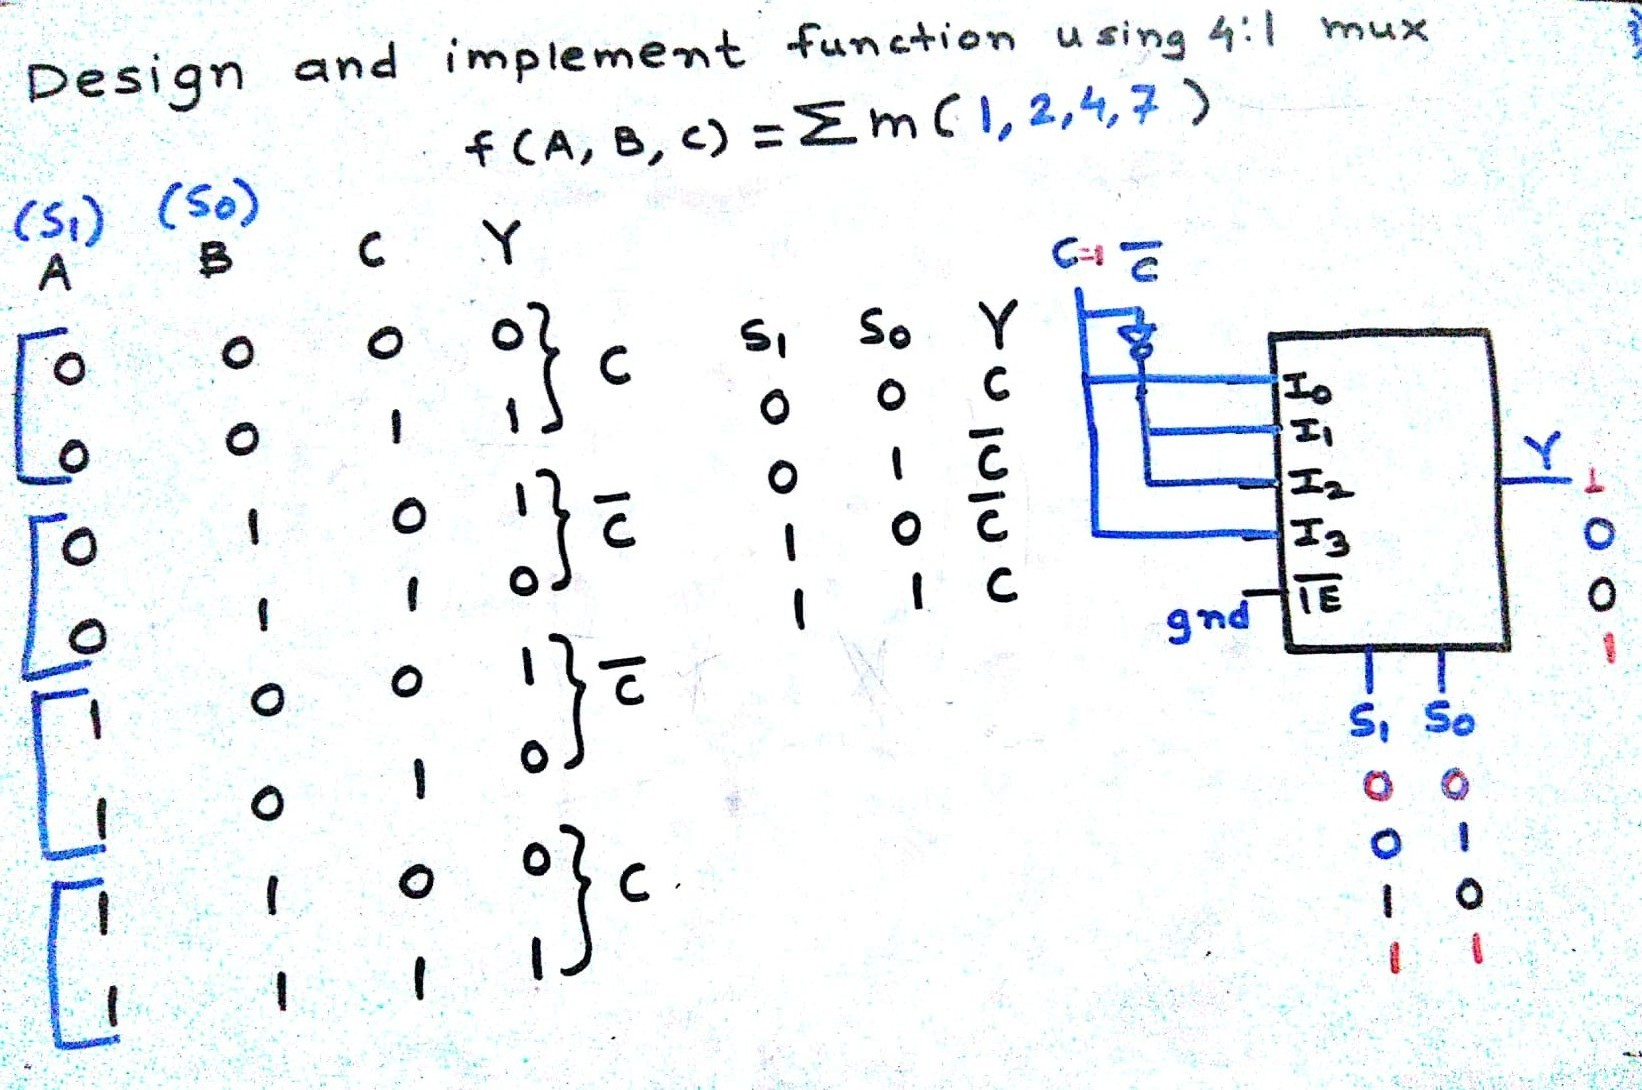 Design and implement function using 4:1 mux
f(A, B, C) = Σm(1, 2, 4, 7)
(S1) (S0)
A B C Y
0 0 0 0 } C
0 0 1 1
0 1 0 1 } C̅
0 1 1 0
1 0 0 1 } C̅
1 0 1 0
1 1 0 0 } C
1 1 1 1
S1 S0 Y
0 0 C
0 1 C̅
1 0 C̅
1 1 C
C=1 C̅
I0
I1
I2
I3
gnd 1E̅
Y
1
0
0
1
S1 S0
0 0
0 1
1 0
1 1